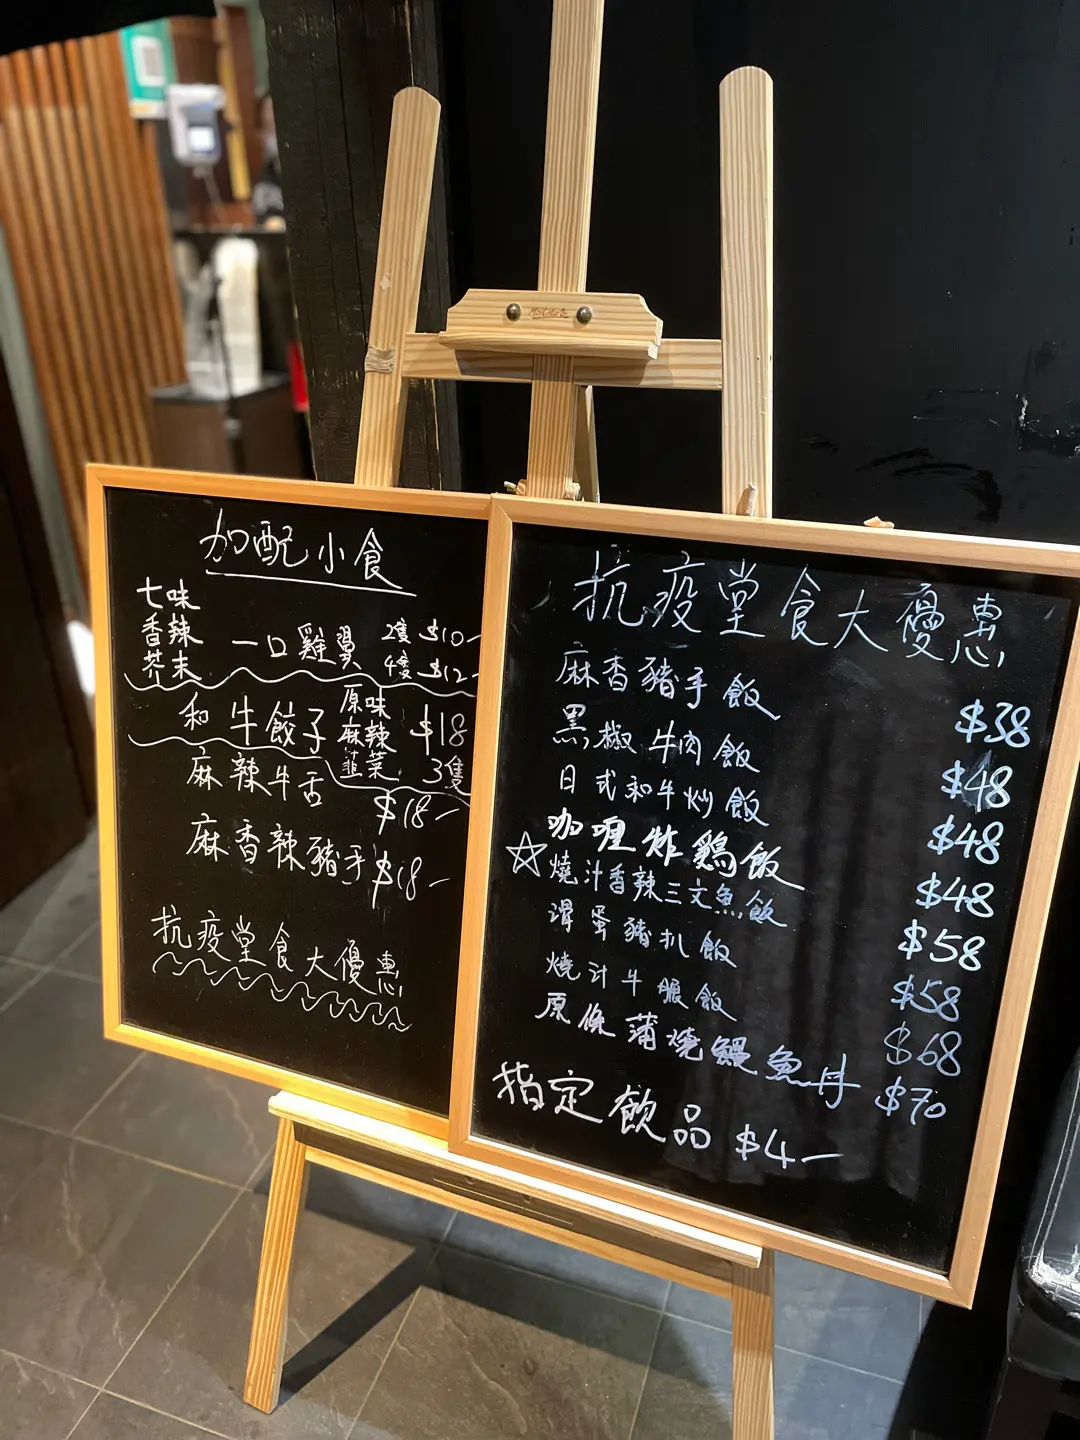 加配小食
七味
香辣
芥末
一口雞翼 2隻 $10-
4隻 $12-
和牛餃子 原味 麻辣 韮菜 $18 3隻
麻辣牛舌 $18-
麻香辣豬手 $18-
抗疫堂食大優惠
抗疫堂食大優惠
麻香豬手飯 $38
黑椒牛肉飯 $48
日式和牛炒飯 $48
咖喱炸鷄飯 $48
☆燒汁香辣三文魚飯 $58
滑蛋豬扒飯 $58
燒汁牛脷飯 $68
原條蒲燒鰻魚丼 $70
指定飲品 $4-